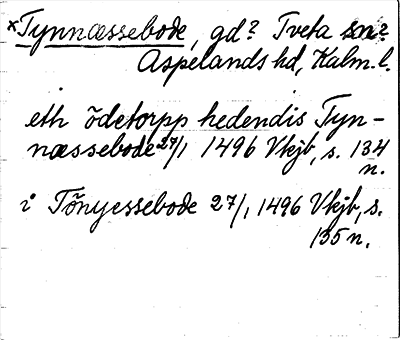 *Tynnæssebode, gd? Tveta sn?
Aspelands hd, Kalm. l.
eth ödetorpp hedendis Tyn-
næssebode 27/1 1496 Vkjb, s. 134
n.
i Tõnyessebode 27/1 1496 Vkjb, s.
135 n.